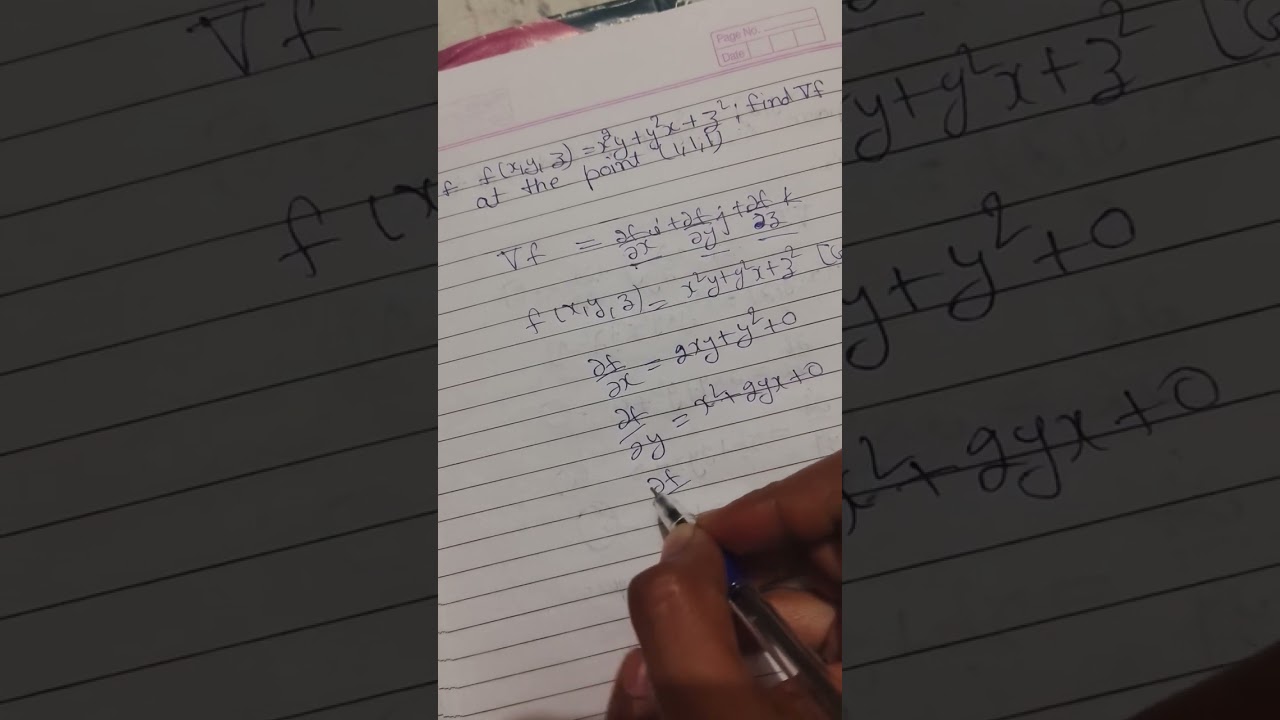 Page No.
Date
If f(x,y,z) = x²y+y²x+z²; find ∇f
at the point (1,1,1)
∇f = ∂f/∂x i + ∂f/∂y j + ∂f/∂z k
f(x,y,z) = x²y+y²x+z²
∂f/∂x = 2xy+y²+0
∂f/∂y = x²+2yx+0
∂f